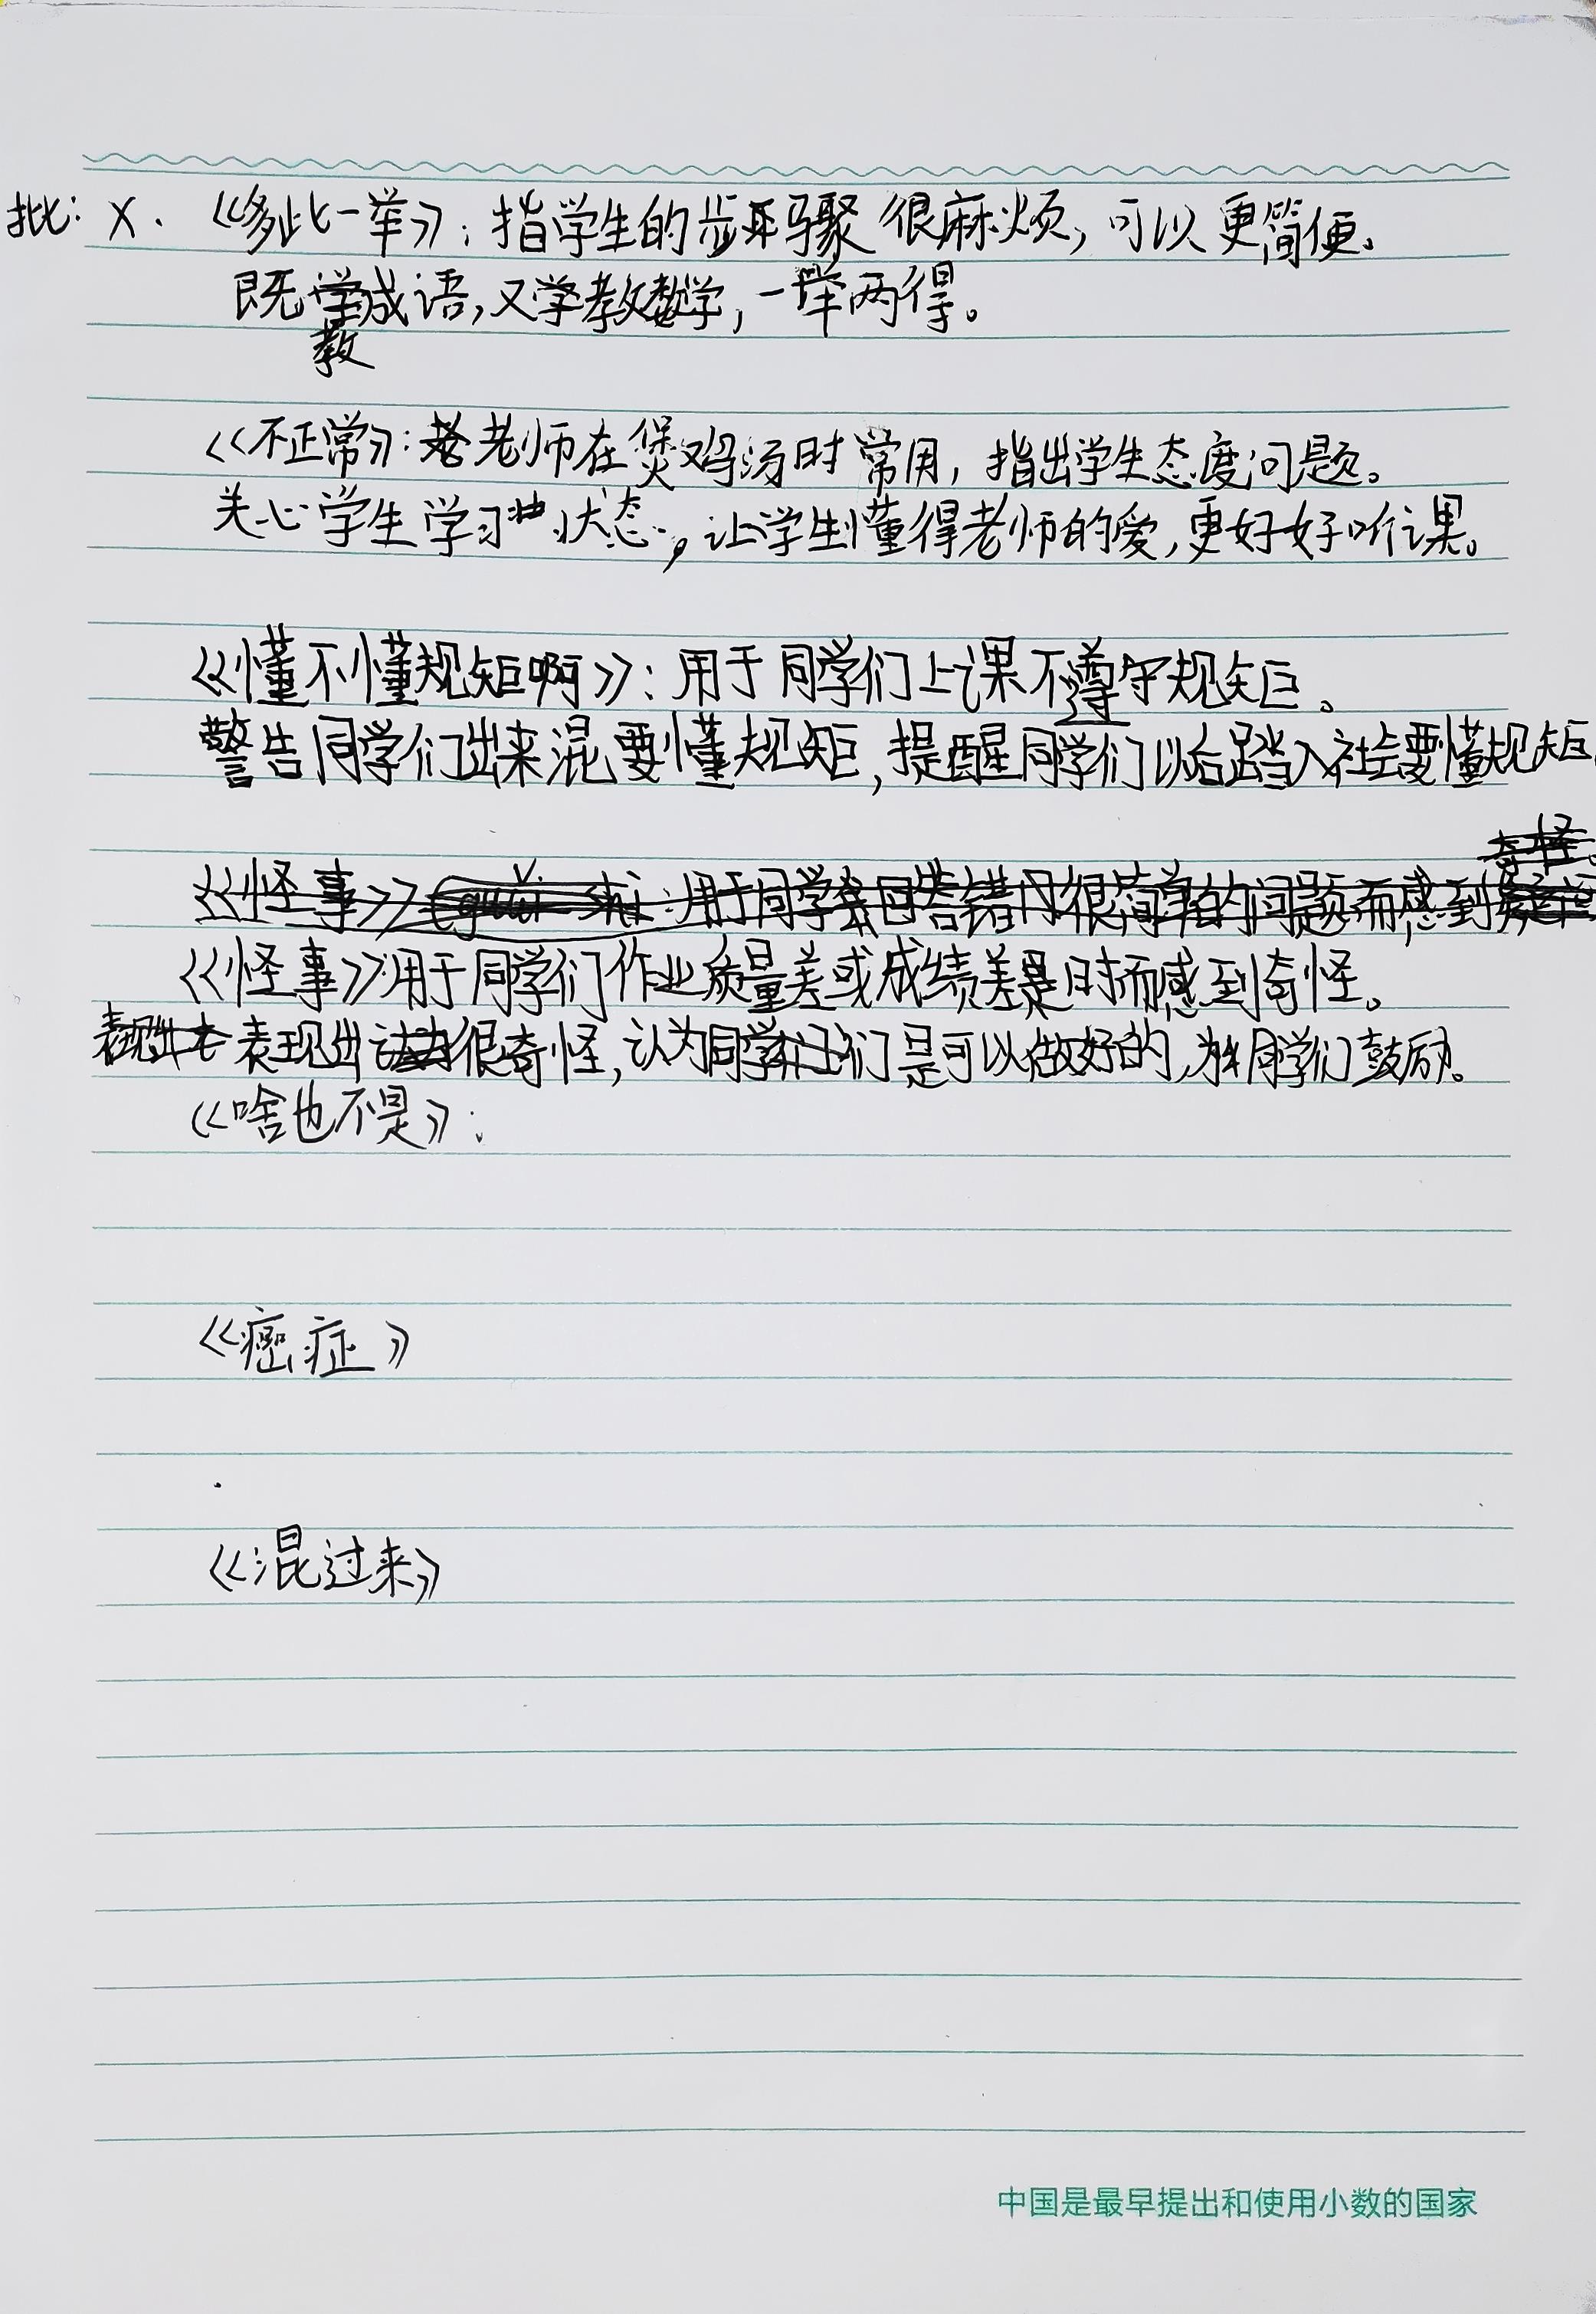 批: X. 《多此一举》: 指学生的步骤很麻烦, 可以更简便。
既教成语, 又学教数学, 一举两得。
《不正常》: 老师在煲鸡汤时常用, 指出学生态度问题。
关心学生学习状态, 让学生懂得老师的爱, 更好好听课。
《懂不懂规矩啊》: 用于同学们上课不遵守规矩。
警告同学们出来混要懂规矩, 提醒同学们以后踏入社会要懂规矩
奇怪。
《怪事》 用于同学回答错很简单的问题而感到
《怪事》用于同学们作业质量差或成绩差时而感到奇怪。
表现出 表现出很奇怪, 认为同学们是可以做好的, 为同学们鼓励。
《啥也不是》:
《癌症》
《混过来》
中国是最早提出和使用小数的国家